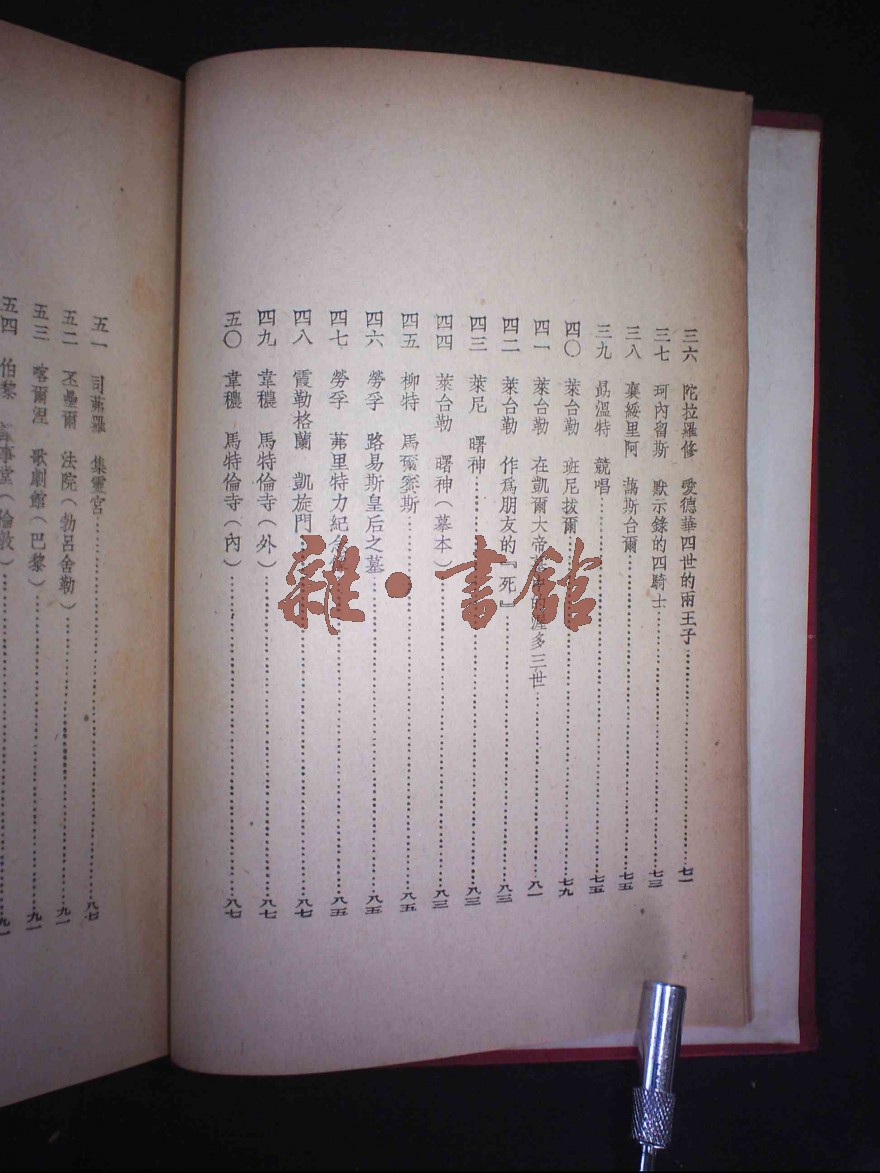 三六 陀拉羅修 愛德華四世的兩王子……七一
三七 珂內留斯 默示錄的四騎士……七三
三八 襄綏里阿 蕩斯台爾……七五
三九 勗溫特 競唱……七五
四〇 萊台勒 班尼拔爾……七九
四一 萊台勒 在凱爾大帝墓中的渥多三世……八一
四二 萊台勒 作爲朋友的『死』……八三
四三 萊尼 曙神……八三
四四 萊台勒 曙神(摹本)……八三
四五 柳特 馬爾賽斯……八五
四六 勞孚 路易斯皇后之墓……八五
四七 勞孚 茀里特力紀念像……八五
四八 霞勒格蘭 凱旋門……八七
四九 韋穠 馬特倫寺(外)……八七
五〇 韋穠 馬特倫寺(內)……八七
五一 司茀羅 集靈宮……八七
五二 丕壘爾 法院(勃呂舍勒)……九一
五三 喀爾涅 歌劇館(巴黎)……九一
五四 伯黎 議事堂(倫敦)……九一
雜·書館